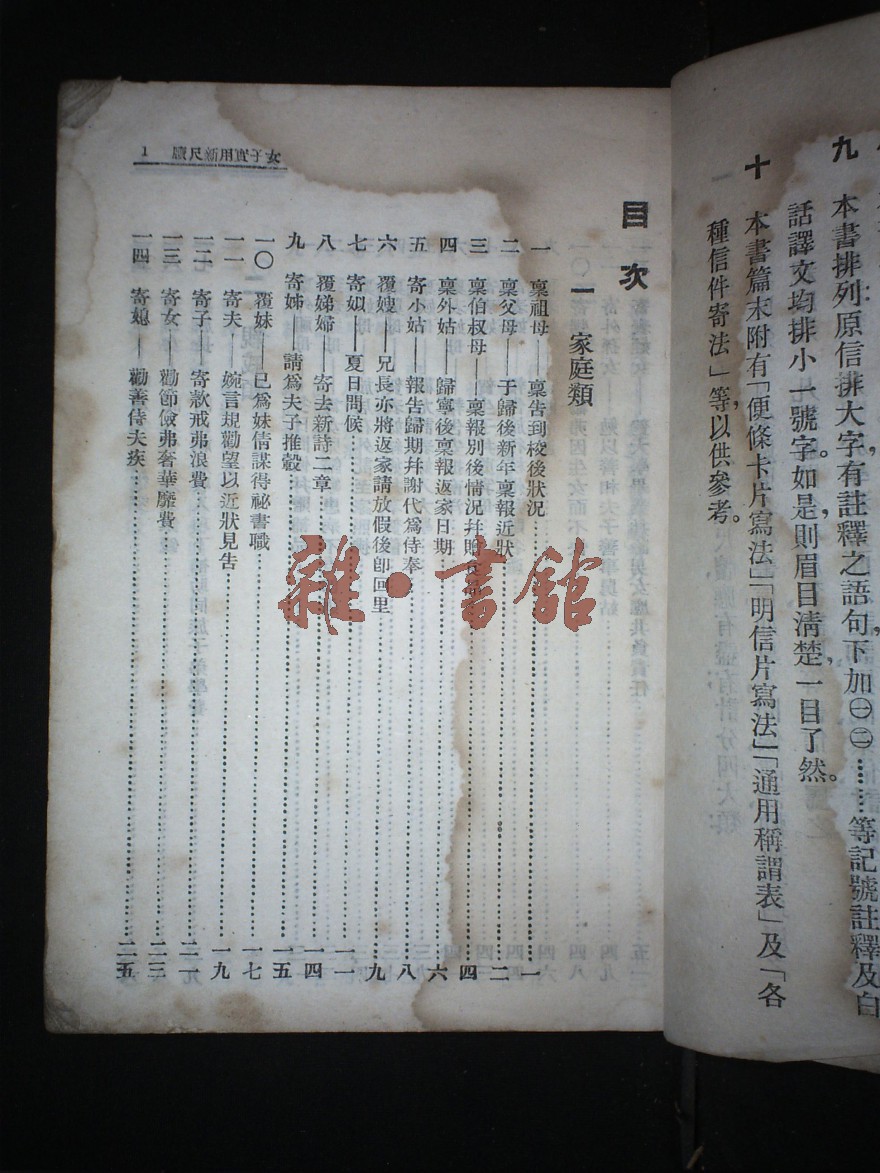 九　本書排列原信排大字有註釋之語句下加㊀㊁……等記號註釋及白
話譯文均排小一號字。如是,則眉目清楚,一目了然。
十　本書篇末附有「便條卡片寫法」「明信片寫法」「通用稱謂表」及「各
種信件寄法」等,以供參考。
女子實用新尺牘　1
目次
一　家庭類
一　稟祖母——稟告到校後狀況……一
二　稟父母——于歸後新年稟報近狀……二
三　稟伯叔母——稟報別後情況幷贈……四
四　稟外姑——歸寧後稟報返家日期……六
五　寄小姑——報告歸期幷謝代爲侍奉……八
六　覆嫂——兄長亦將返家請放假後卽回里……九
七　寄姒——夏日問候……一一
八　覆娣婦——寄去新詩二章……一四
九　寄姊——請爲夫子推轂……一五
一〇　覆妹——已爲妹倩謀得祕書職……一七
一一　寄夫——婉言規勸望以近狀見告……一九
一二　寄子——寄款戒弗浪費……二一
一三　寄女——勸節儉弗奢華靡費……二三
一四　寄媳——勸善侍夫疾……二五
雜·書館